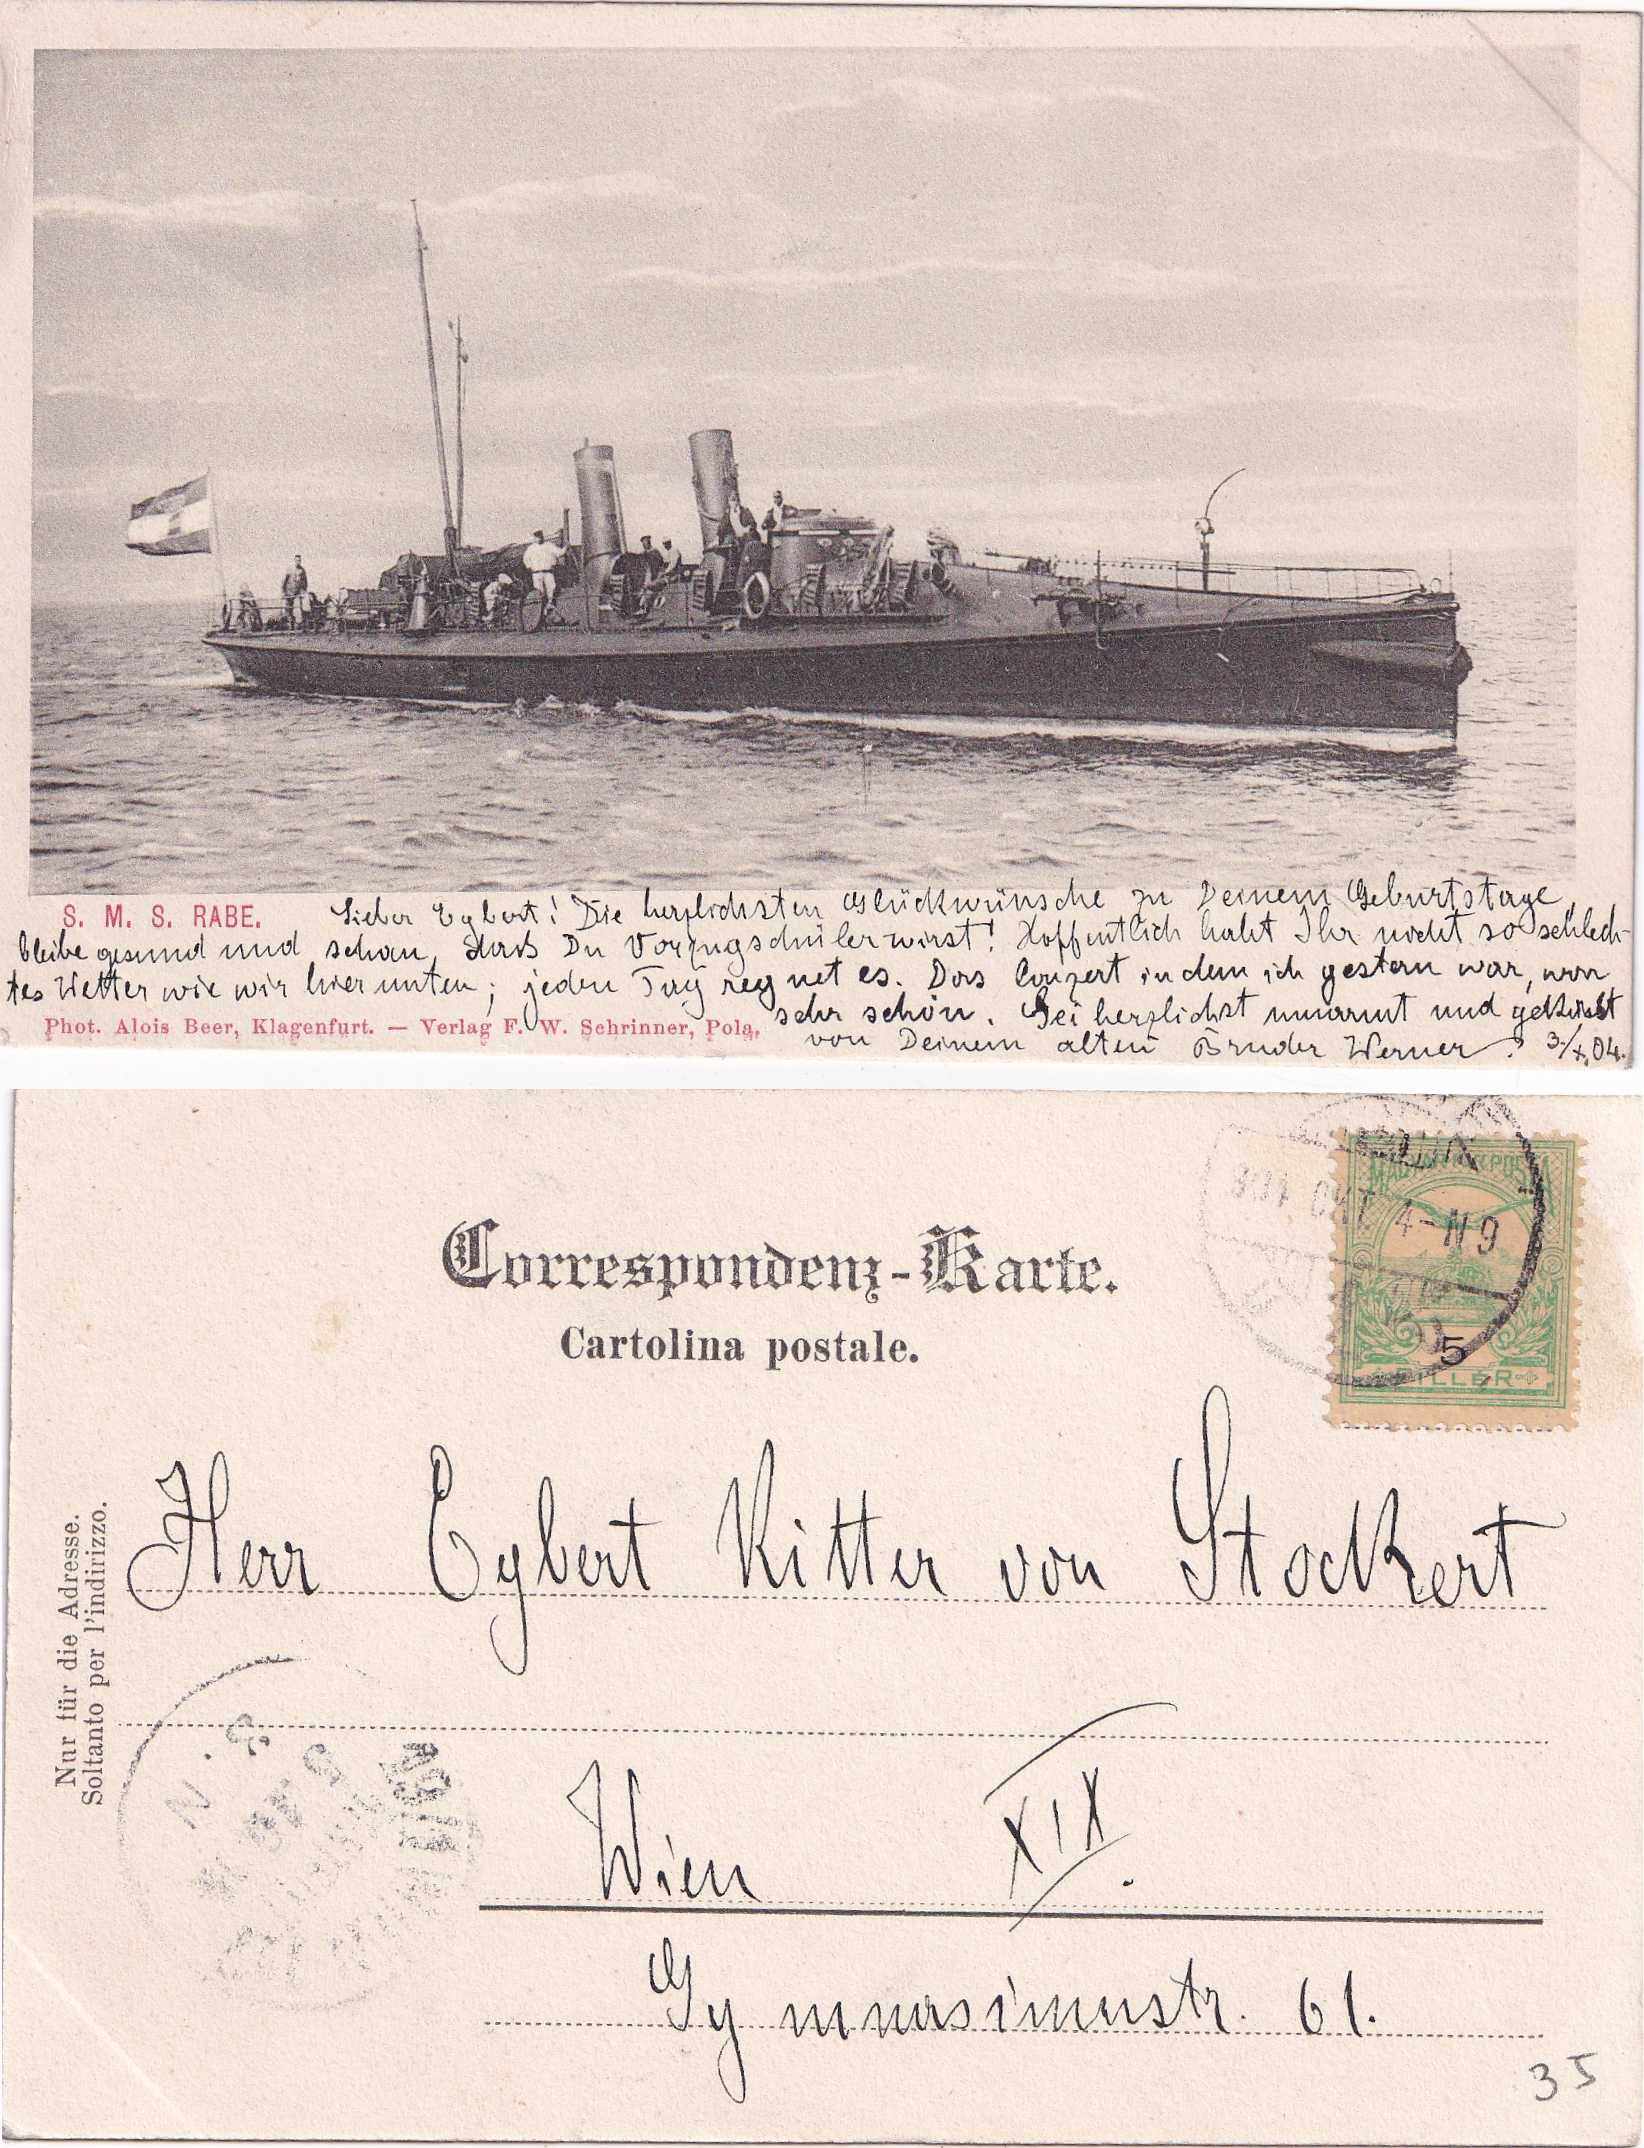 S. M. S. RABE.
Lieber Egbert! Die herzlichsten Glückwünsche zu Deinem Geburtstage,
bleibe gesund und schau, dass Du Vorzugschüler wirst! Hoffentlich habt Ihr nicht so schlech-
tes Wetter wie wir hier unten; jeden Tag regnet es. Das Conzert in dem ich gestern war, war
sehr schön. Sei herzlichst umarmt und geküsst
von Deinem alten Bruder Werner. 3/X.04.
Phot. Alois Beer, Klagenfurt. — Verlag F. W. Schrinner, Pola.
MAGYAR KIR. POSTA
904 OKT 4-N9
5
FILLÉR
Correspondenz-Karte.
Cartolina postale.
Nur für die Adresse.
Soltanto per l'indirizzo.
Herr Egbert Ritter von Stockert
Wien XIX.
Gymnasiumstr. 61.
35